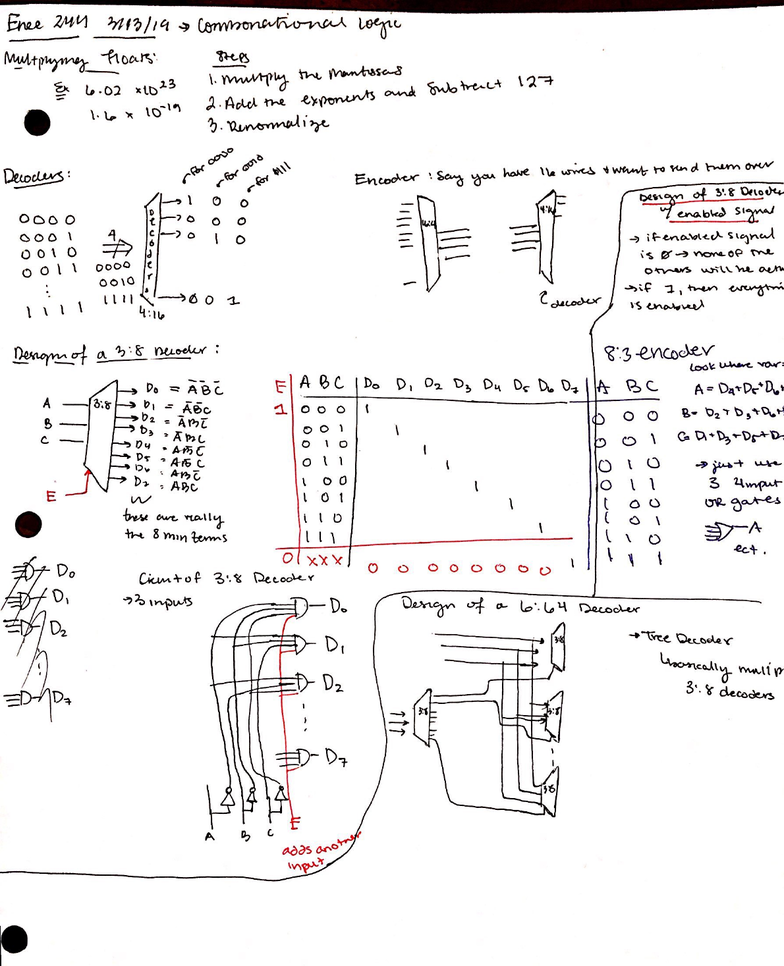 Enee 244 3/13/19 → Combonational logic
Multiplying floats:
Ex 6.02 x10^23
1.6 x 10^-19
Steps
1. Multiply the Mantissas
2. Add the exponents and subtract 127
3. Renormalize
Decoders:
0 0 0 0
0 0 0 1
0 0 1 0
0 0 1 1
⋮
1 1 1 1
4
0000
0010
1111
Decoders
4:16
for 0000
for 0010
for 1111
→ 1 0 0
→ 0 0 0
→ 0 1 0
→ 0 0 1
Encoder : Say you have 16 wires & want to send them over
4:16
decoder
Design of 3:8 Decoder
w/ enabled signal
→ if enabled signal
is 0 → none of the
others will be
→ if 1, then
is enabled
Design of a 3:8 Decoder :
A
B
C
E
3:8
D0 = A̅B̅C̅
D1 = A̅B̅C
D2 = A̅BC̅
D3 = A̅BC
D4 = AB̅C̅
D5 = AB̅C
D6 = ABC̅
D7 = ABC
these are really
the 8 min terms
E A B C D0 D1 D2 D3 D4 D5 D6 D7
1 0 0 0 1
0 0 1 1
0 1 0 1
0 1 1 1
1 0 0 1
1 0 1 1
1 1 0 1
1 1 1 1
0 X X X 0 0 0 0 0 0 0
8:3 encoder
Look where
A B C
0 0 0
0 0 1
0 1 0
0 1 1
1 0 0
1 0 1
1 1 0
1 1 1
A = D4+D5+D6+
B = D2+D3+D6+
C = D1+D3+D5+D
→ just use
3 4input
OR gates
A
ect.
D0
D1
D2
⋮
D7
Circuit of 3:8 Decoder
→ 3 inputs
D0
D1
D2
D7
A B C E
adds another
input
Design of a 6:64 Decoder
3:8
3:8
3:8
3:8
→ Tree Decoder
basically
3:8 decoders